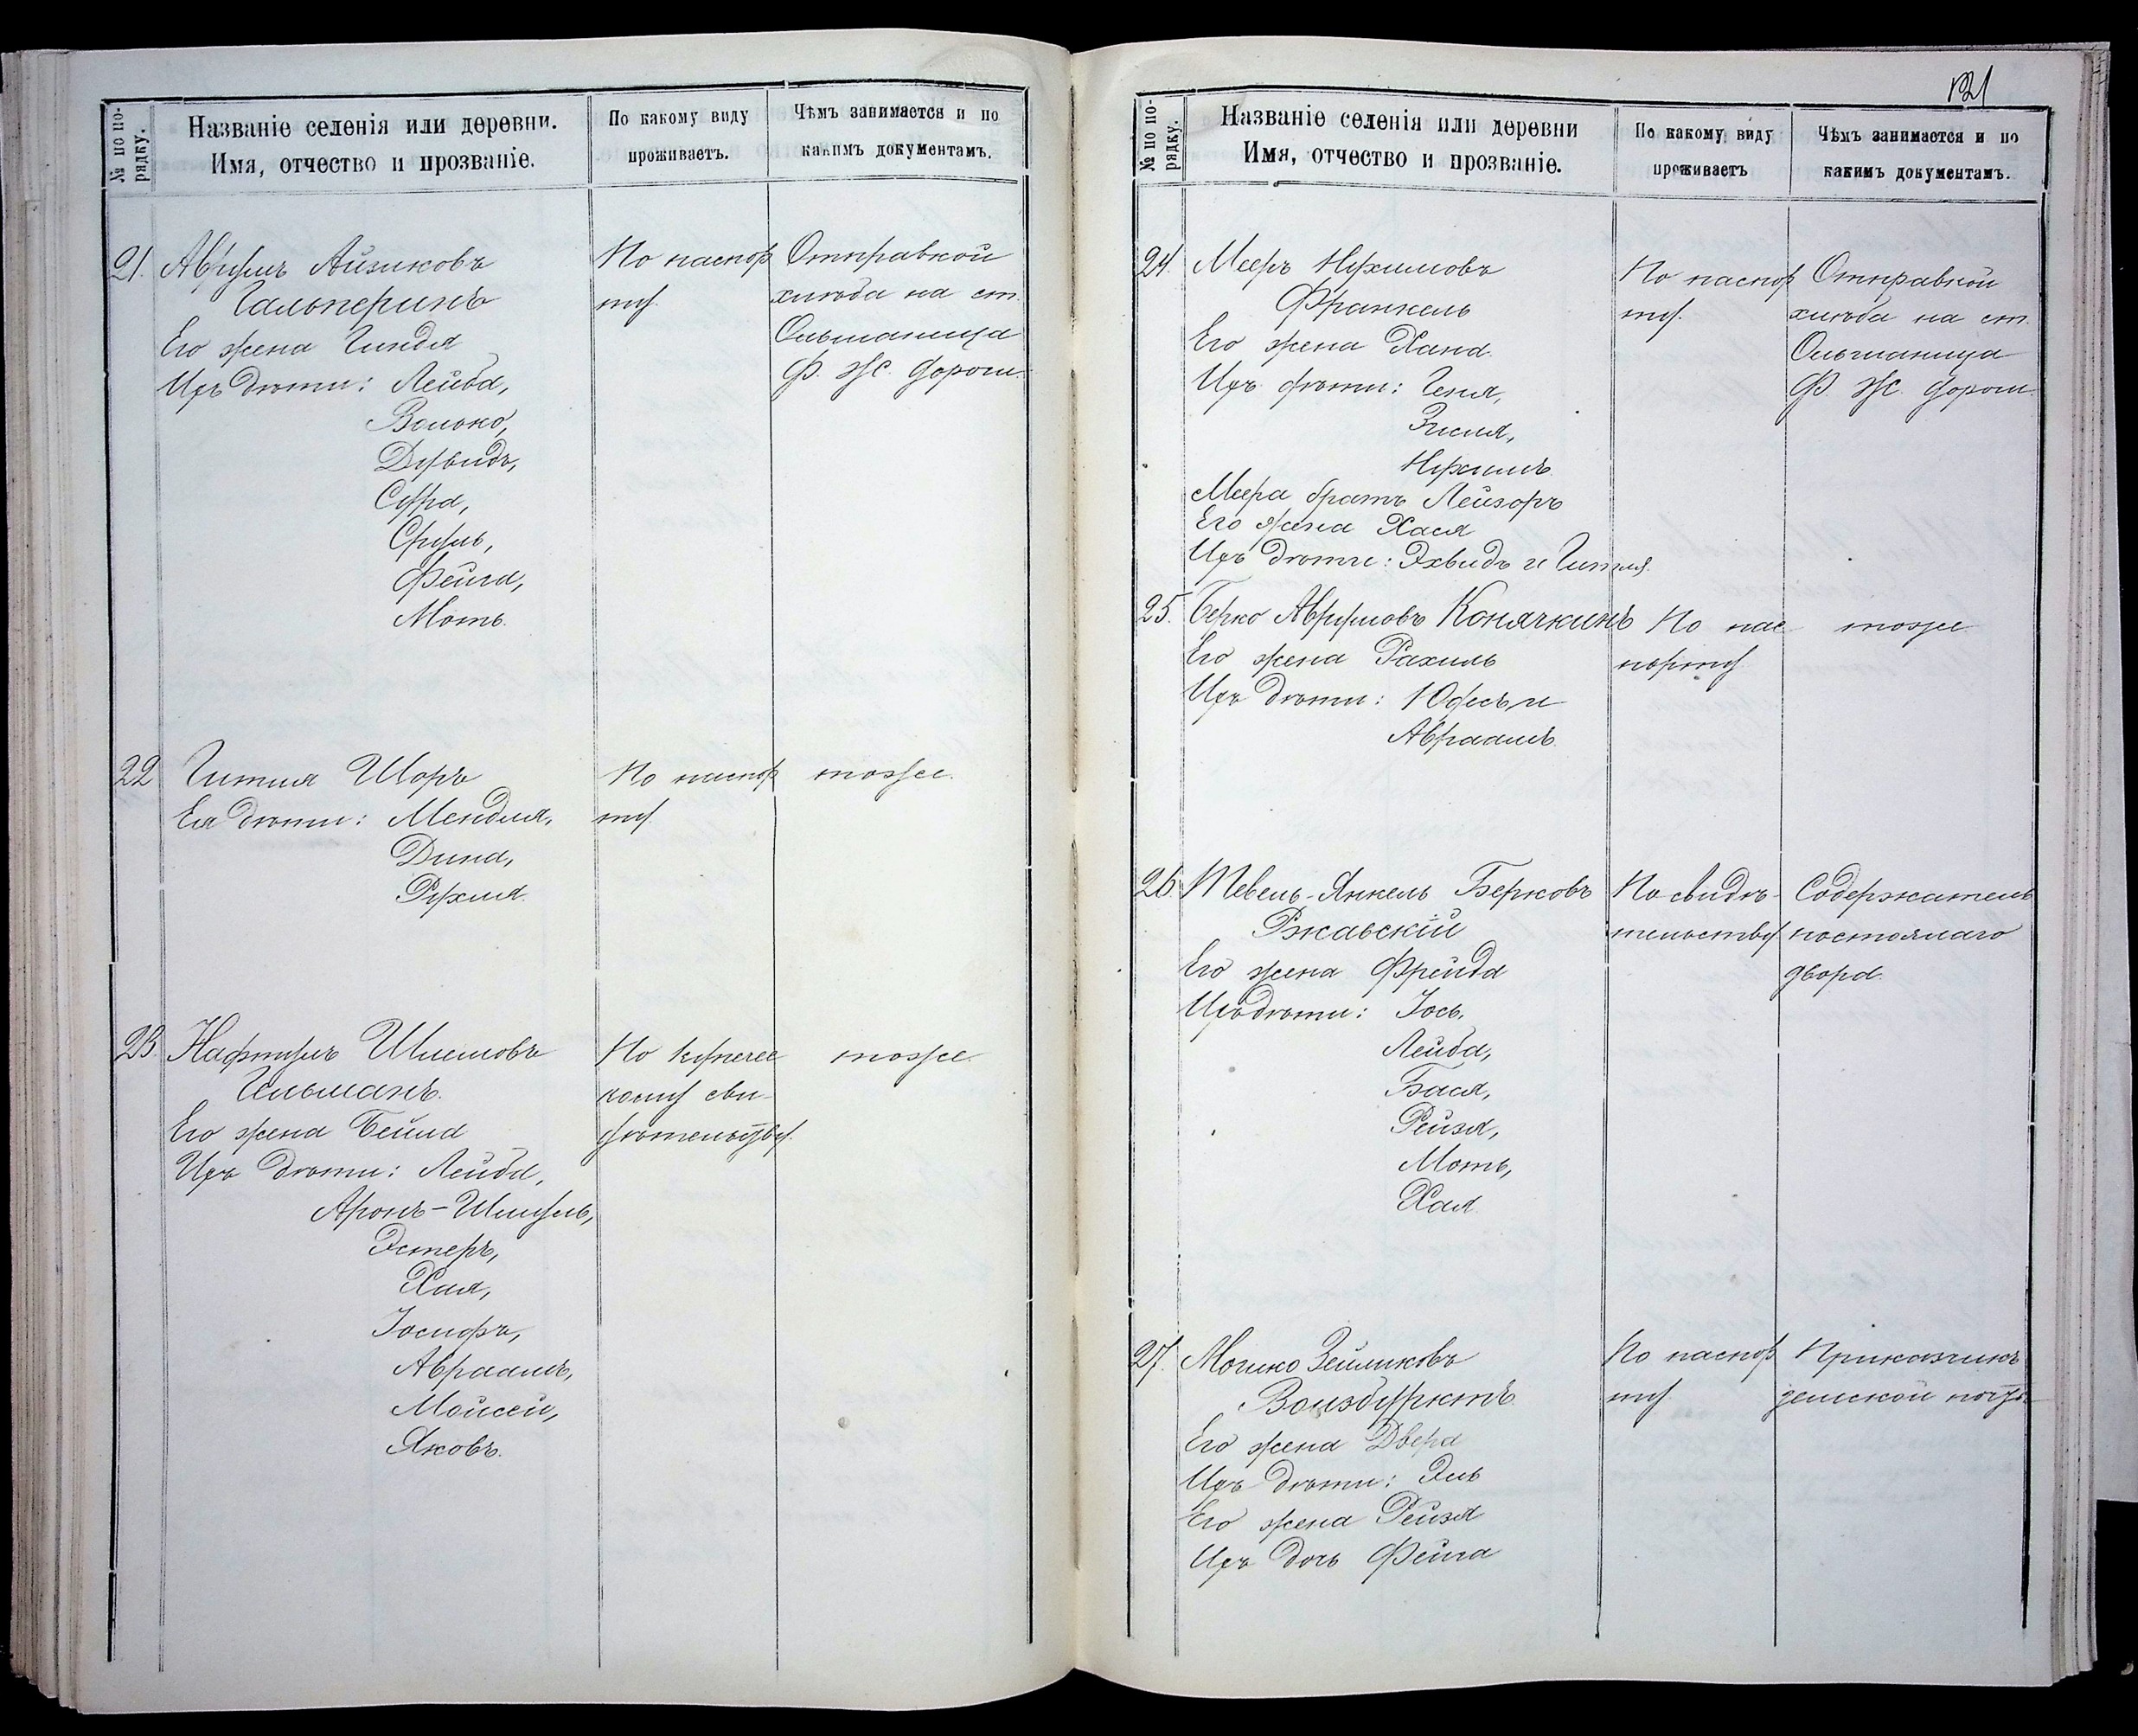 № по по-
рядку.
Названіе селенія или деревни.
Имя, отчество и прозваніе.
По какому виду
проживаетъ.
Чѣмъ занимается и по
какимъ документамъ.
21. Аврумъ Айзиковъ
Гальперинъ
Его жена Гиндя
Ихъ дѣти: Лейба,
Волько,
Дувидъ,
Сурра,
Сруль,
Фейга,
Моть.
По паспор
ту.
Отправкой
хлѣба на ст.
Ольшаница
Ф. Ж. дороги.
22 Гитля Шоръ
Ея дѣти: Мендля,
Дина,
Рухля.
По паспор
ту.
тоже.
23. Нафтулъ Шлемовъ
Гельманъ.
Его жена Бейла
Ихъ дѣти: Лейба,
Аронъ-Шмуль,
Эстеръ,
Хая,
Іосифъ,
Авраамъ,
Мойсей,
Яковъ.
По купечес
кому сви-
дѣтельству.
тоже.
121
№ по по-
рядку.
Названіе селенія или деревни
Имя, отчество и прозваніе.
По какому виду
проживаетъ
Чѣмъ занимается и по
какимъ документамъ.
24. Мееръ Нухимовъ
Франкель
Его жена Хана.
Ихъ дѣти: Геня,
Зисля,
Нухимъ.
Меера братъ Лейзоръ
Его жена Хася
Ихъ дѣти: и Гитля.
По паспор
ту.
Отправкой
хлѣба на ст.
Ольшаница
Ф. Ж. дороги.
25. Берко Аврумовъ Конячкинъ
Его жена Рахиль
Ихъ дѣти: Юдесь и
Авраамъ.
По пас
порту
тоже
26. Тевель-Янкель Берковъ
Ржавскій
Его жена Фрейда
Ихъ дѣти: Іось,
Лейба,
Бася,
Рейзя,
Моть,
Хая.
По свидѣ-
тельству
Содержатель
постоялаго
двора.
27. Мошко Зейликовъ
Его жена Двера
Ихъ дѣти: Эль
Его жена Рейзя
Ихъ дочь Фейга
По паспор
ту
Приказчикъ
земской почт.